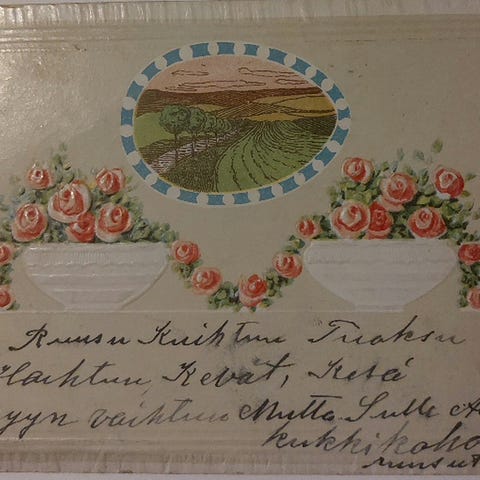 Ruusu Kuihtuu Tuoksu
Haihtuu, Kevät, Kesä
vaihtuu Mutta Sulle
kukkikoho
ruusut